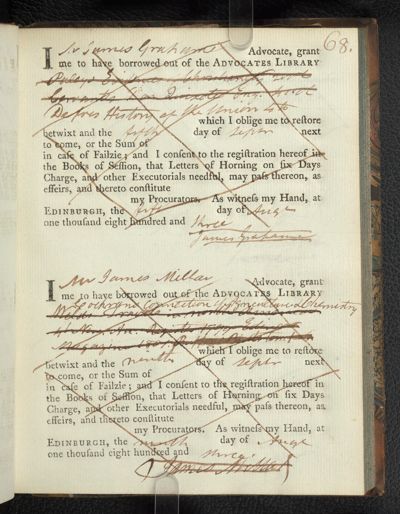 68.
I Mr James Graham Advocate, grant
me to have borrowed out of the ADVOCATES LIBRARY
Defoes History of the Union 4to
which I oblige me to reſtore
betwixt and the fifth day of Septr next
to come, or the Sum of
in caſe of Failzie; and I conſent to the regiſtration hereof in
the Books of Seſſion, that Letters of Horning on ſix Days
Charge, and other Executorials needful, may paſs thereon, as
effeirs, and thereto conſtitute
my Procurators. As witneſs my Hand, at
EDINBURGH, the fifth day of Augt
one thouſand eight hundred and three
James Graham
I Mr James Advocate, grant
me to have borrowed out of the ADVOCATES LIBRARY
Cochrans Connection of Agriculture & Chemistry
Magazine
which I oblige me to reſtore
betwixt and the ninth day of Septr next
to come, or the Sum of
in caſe of Failzie; and I conſent to the regiſtration hereof in
the Books of Seſſion, that Letters of Horning on ſix Days
Charge, and other Executorials needful, may paſs thereon, as
effeirs, and thereto conſtitute
my Procurators. As witneſs my Hand, at
EDINBURGH, the ninth day of Augt
one thouſand eight hundred and three
James